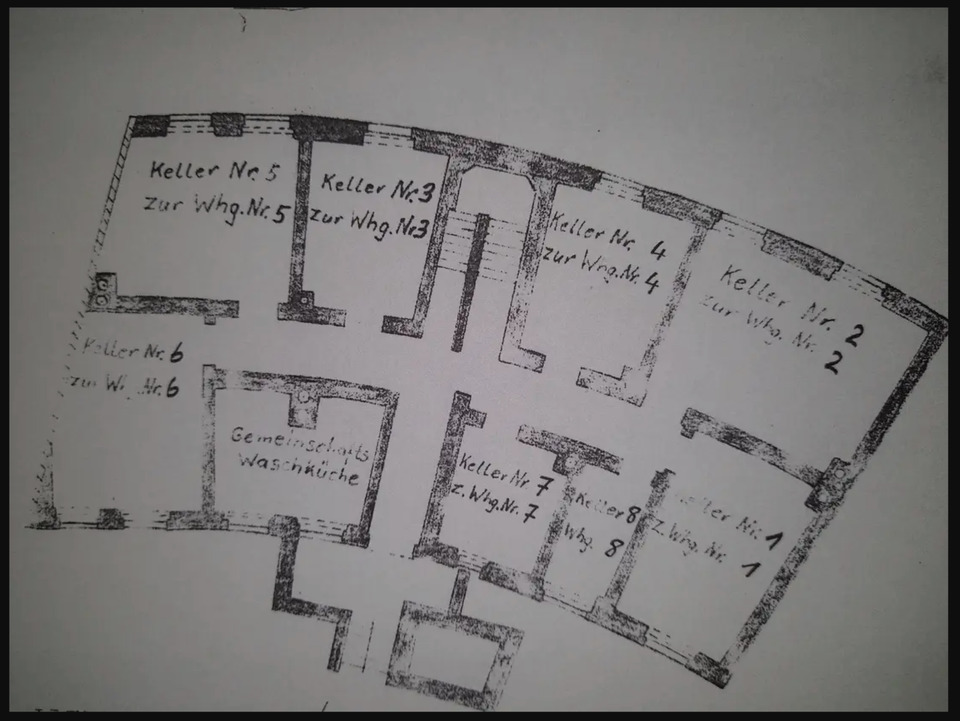 Keller Nr. 5
zur Whg. Nr. 5
Keller Nr. 3
zur Whg. Nr 3
Keller Nr. 4
zur Whg. Nr. 4
Keller Nr. 2
zur Whg. Nr. 2
Keller Nr. 6
zur Nr. 6
Gemeinschafts
Waschküche
Keller Nr 7
z. Whg. Nr. 7
Keller 8
Whg. 8
Keller Nr. 1
z. Whg. Nr. 1